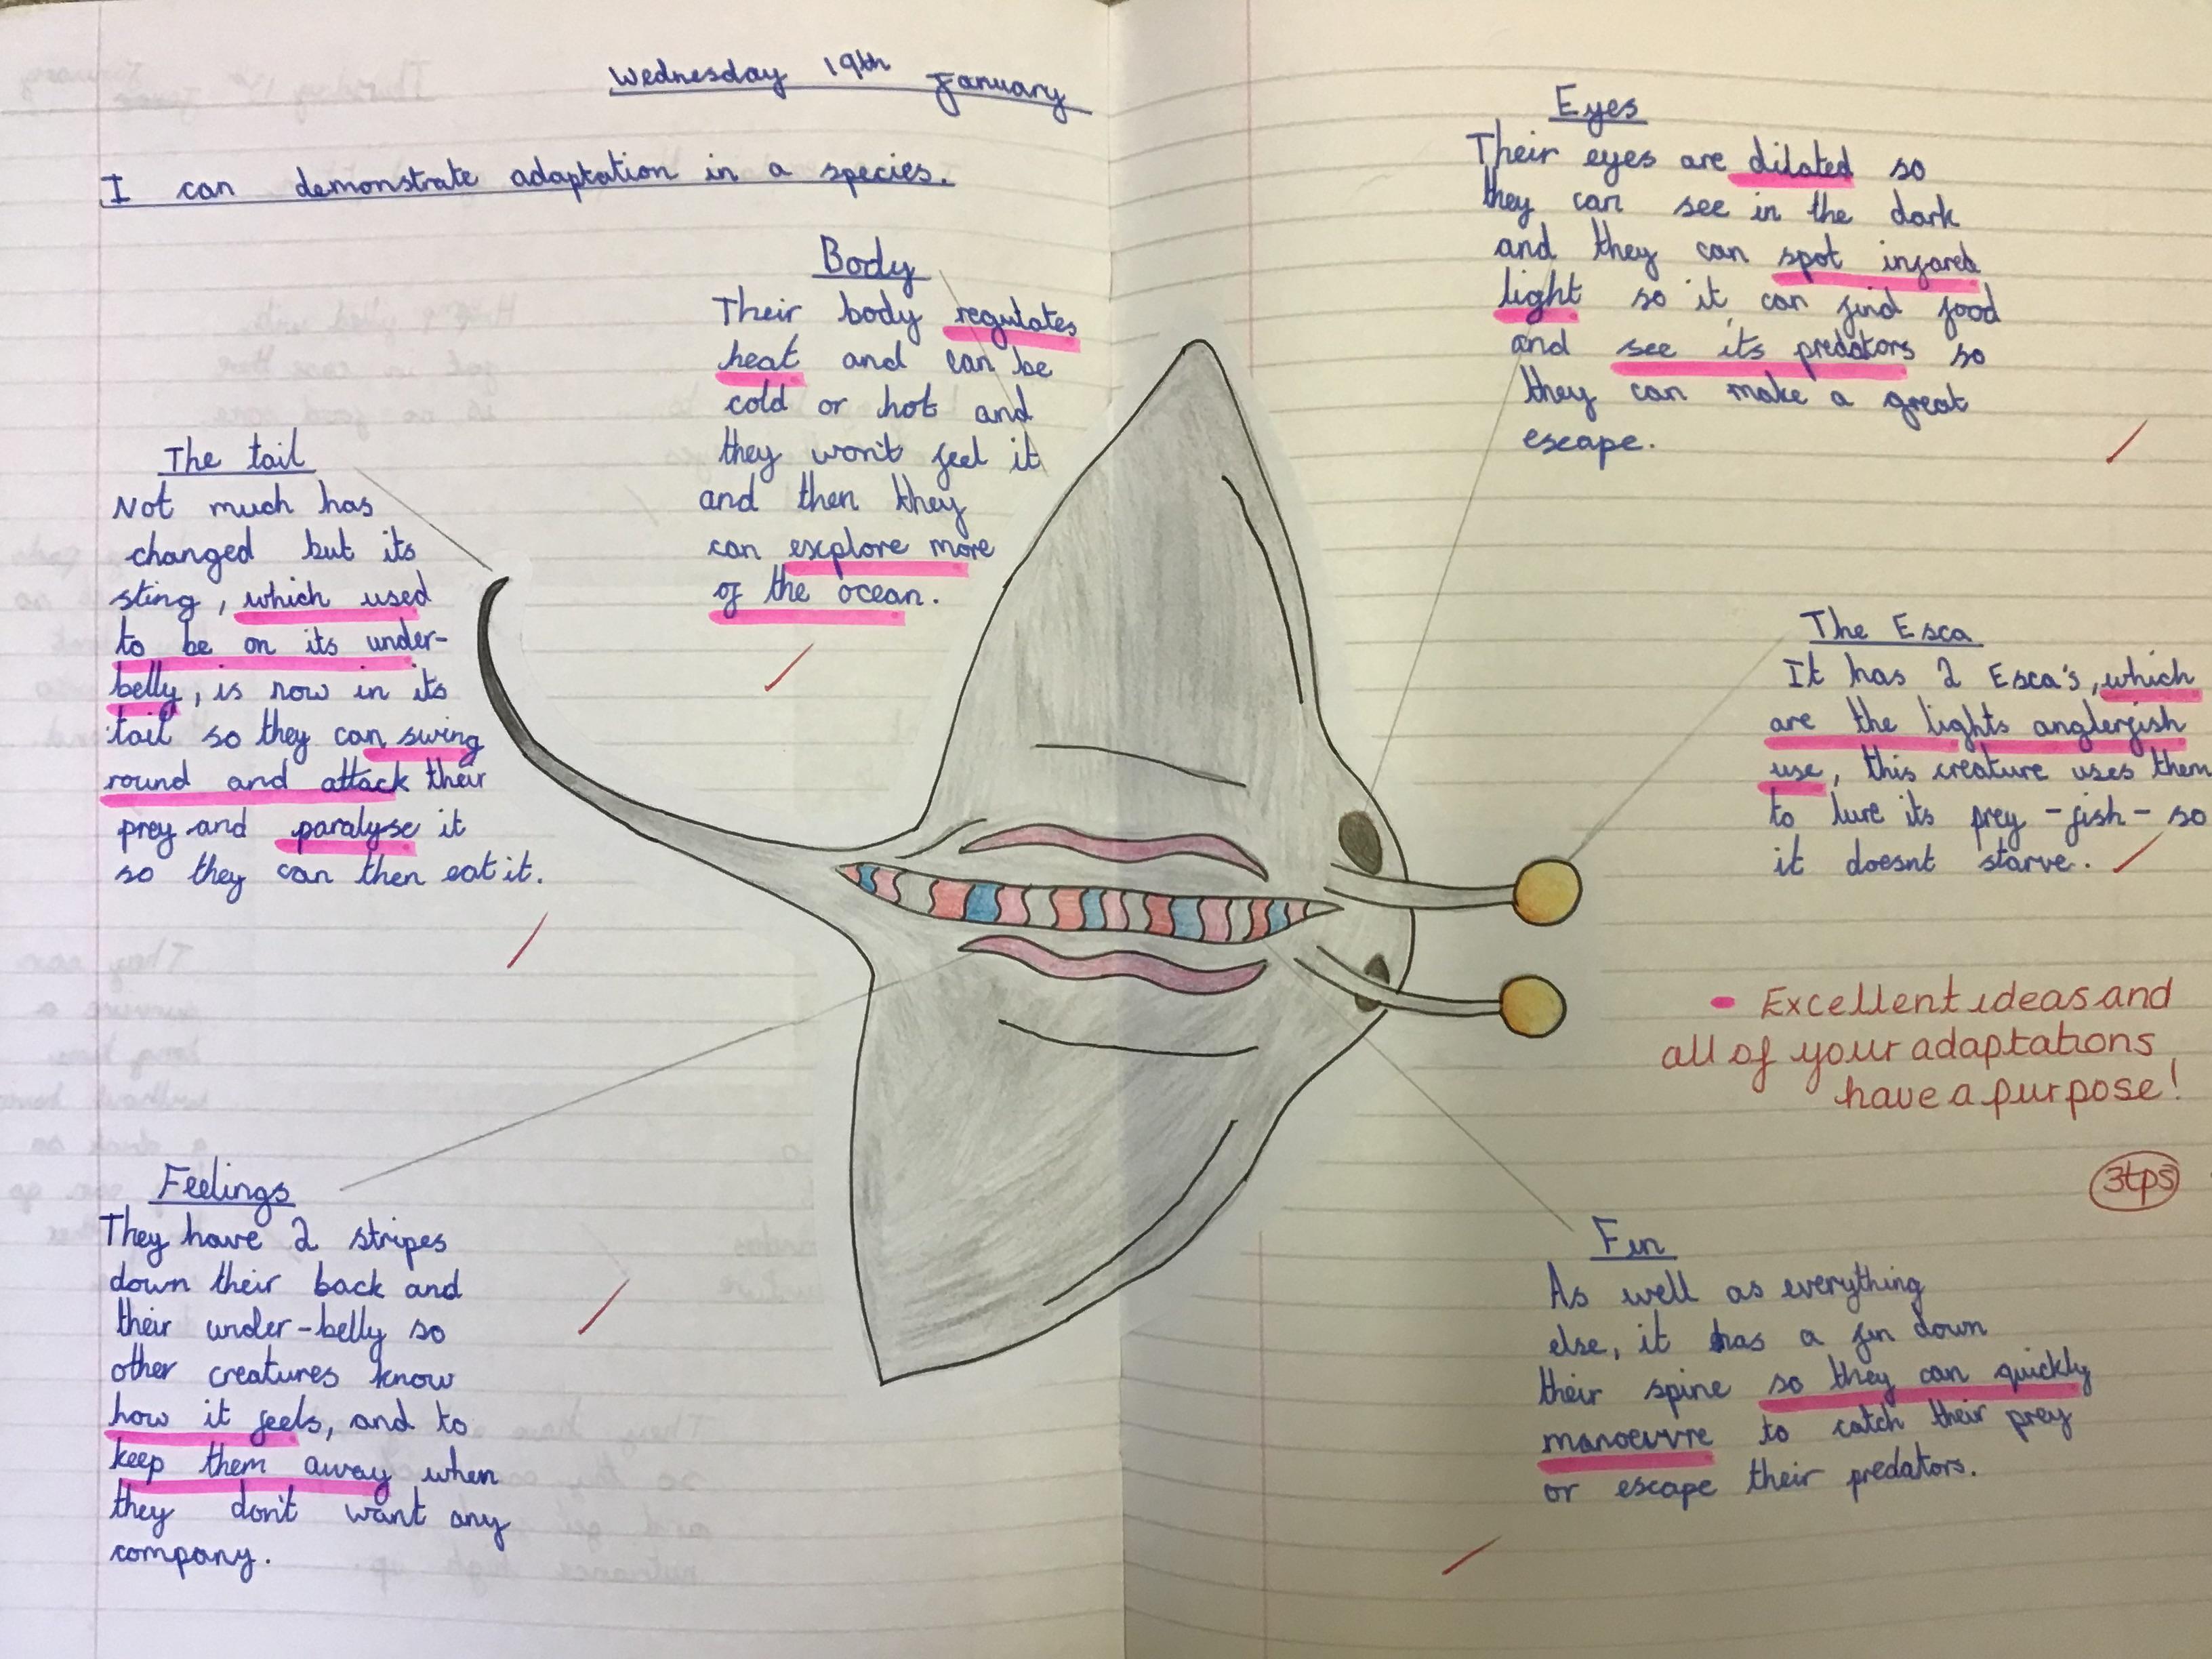 Wednesday 19th January
I can demonstrate adaptation in a species.
Body
Their body regulates
heat and can be
cold or hot and
they won't feel it
and then they
can explore more
of the ocean.
The tail
Not much has
changed but its
sting, which used
to be on its under-
belly, is now in its
tail so they can swing
round and attack their
prey and paralyse it
so they can then eat it.
Feelings
They have 2 stripes
down their back and
their under-belly so
other creatures know
how it feels, and to
keep them away when
they don't want any
company.
Eyes
Their eyes are dilated so
they can see in the dark
and they can spot infared
light so it can find food
and see its predators so
they can make a great
escape.
The Esca
It has 2 Esca's, which
are the lights anglerfish
use, this creature uses them
to lure its prey - fish - so
it doesnt starve.
- Excellent ideas and
all of your adaptations
have a purpose!
3tps
Fin
As well as everything
else, it has a fin down
their spine so they can quickly
manoeuvre to catch their prey
or escape their predators.